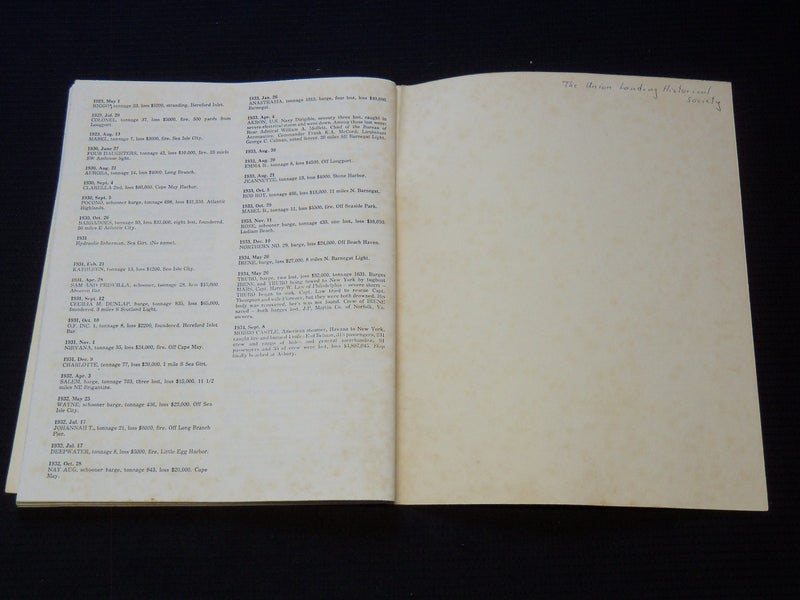 1929, May 1
tonnage 23, loss $5200, stranding. Hereford Inlet.
1929, Jul. 29
COLONEL, tonnage 37, loss $5000, fire, 500 yards from
Longport.
1929, Aug. 13
MABEL, tonnage 7, loss $3000, fire. Sea Isle City.
1930, June 27
FOUR DAUGHTERS, tonnage 42, loss $10,000, fire. 35 miles
SW Ambrose light.
1930, Aug. 21
AURORA, tonnage 14, loss $4000. Long Branch.
1930, Sept. 4
CLARELLA 2nd, loss $60,000. Cape May Harbor.
1930, Sept. 5
POCONO, schooner barge, tonnage 698, loss Atlantic
Highlands.
1930, Oct. 26
tonnage 93, loss $35,000, eight lost, foundered.
50 miles E Atlantic City.
1931
Hydraulic fisherman. Sea Girt. (No name).
1931, Feb. 21
KATHLEEN, tonnage 13, loss $1200. Sea Isle City.
1931, Apr. 28
SAM AND PRISCILLA, schooner, tonnage 28, loss $15,000.
Absecon Bar.
1931, Sept. 12
CECELIA M. DUNLAP, barge, tonnage 835, loss $65,000,
foundered. 3 miles S Scotland Light.
1931, Oct. 10
O.F. INC. 1, tonnage 8, loss $2200, foundered. Hereford Inlet
Bar.
1931, Nov. 1
NIRVANA, tonnage 35, loss $24,000, fire. Off Cape May.
1931, Dec. 9
CHARLOTTE, tonnage 77, loss $20,000. 1 mile S Sea Girt.
1932, Apr. 3
SALEM, barge, tonnage 703, three lost, loss $15,000. 11 1/2
miles NE Brigantine.
1932, May 25
WAYNE, schooner barge, tonnage 436, loss $23,000. Off Sea
Isle City.
1932, Jul. 17
JOHANNAH T., tonnage 21, loss $6000, fire. Off Long Branch
Pier.
1932, Jul. 17
DEEPWATER, tonnage 8, loss $5000, fire. Little Egg Harbor.
1932, Oct. 28
NAY AUG, schooner barge, tonnage 843, loss $20,000. Cape
May.
1933, Jan. 26
ANASTRASIA, tonnage 1353, barge, four lost, loss $10,000.
Barnegat.
1933, Apr. 4
AKRON, U.S. Navy Dirigible, seventy three lost, caught in
severe electrical storm and went down. Among those lost were:
Rear Admiral William A. Moffett, Chief of the Bureau of
Aeronautics; Commander Frank C. McCord; Lieutenant
George C. Calnan, noted fencer. 20 miles SE Barnegat Light.
1933, Aug. 20
1933, Aug. 20
EMMA R., tonnage 8, loss $4500. Off Longport.
1933, Aug. 21
JEANNETTE, tonnage 15, loss $4000. Stone Harbor.
1933, Oct. 5
ROB ROY, tonnage 486, loss $15,000. 11 miles N. Barnegat.
1933, Oct. 29
MABEL B., tonnage 11, loss $5500, fire. Off Seaside Park.
1933, Nov. 11
ROSE, schooner barge, tonnage 433, one lost, loss
Ludlam Beach.
1933, Dec. 10
NORTHERN NO. 29, barge, loss $24,000. Off Beach Haven.
1934, May 26
IRENE, barge, loss $27,000. 8 miles N. Barnegat Light.
1934, May 26
TRURO, barge, two lost, loss $32,000, tonnage 1631. Barges
IRENE and TRURO being towed to New York by tugboat
MARS, Capt. Harry W. Law of Philadelphia - severe storm -
TRURO began to sink. Capt. Law tried to rescue Capt.
Thompson and wife Florence, but they were both drowned. His
body was recovered, her's was not found. Crew of IRENE
saved - both barges lost. J.P. Martin Co. of Norfolk, Va.
owners.
1934, Sept. 8
MORRO CASTLE, American steamer, Havana to New York,
caught fire and burned 6 mile E of Belmar, 318 passengers, 231
crew and cargo of hides and general merchandise. 91
passengers and 33 of crew were lost, loss Ship
finally beached at Asbury.
The Union Landing Historical
Society